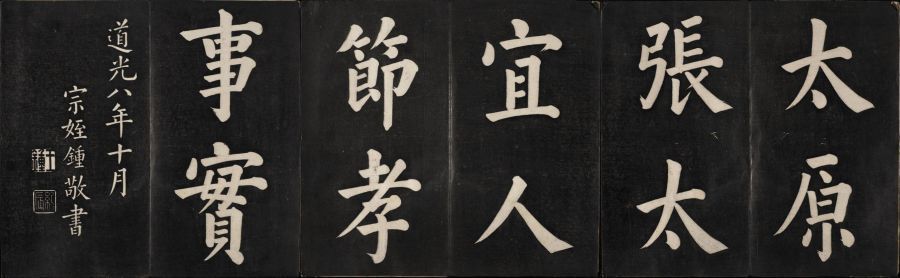 太原
張太
宜人
節孝
事實
道光八年十月
宗姪鍾敬書